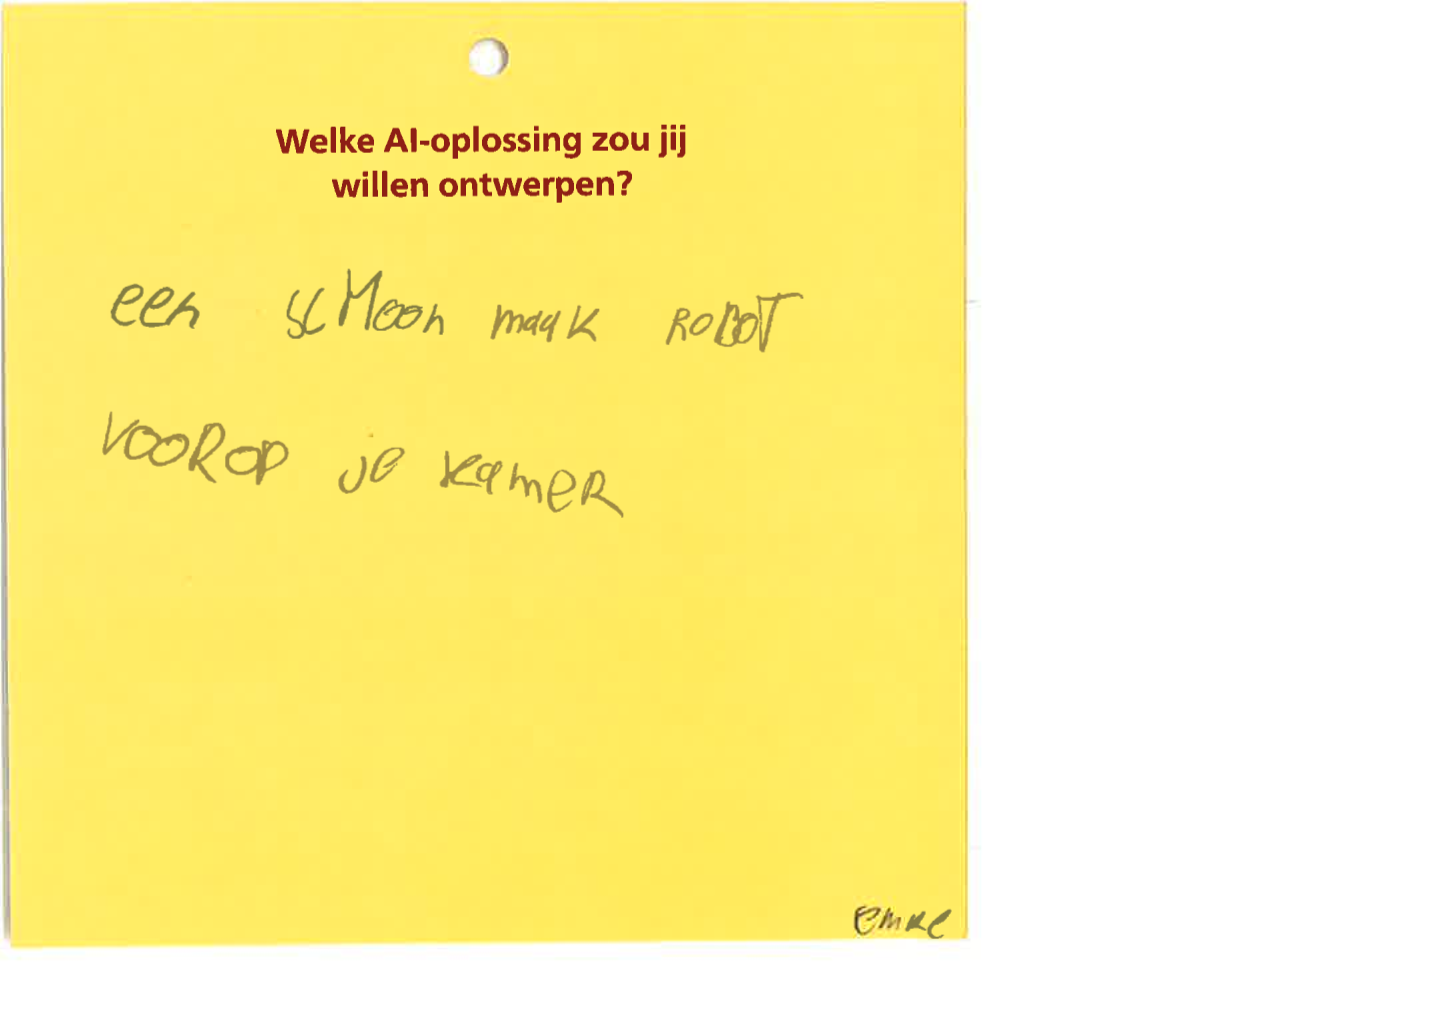 Welke AI-oplossing zou jij
willen ontwerpen?
een scHoon maak ROBOT
VOOROP je kamer
emre